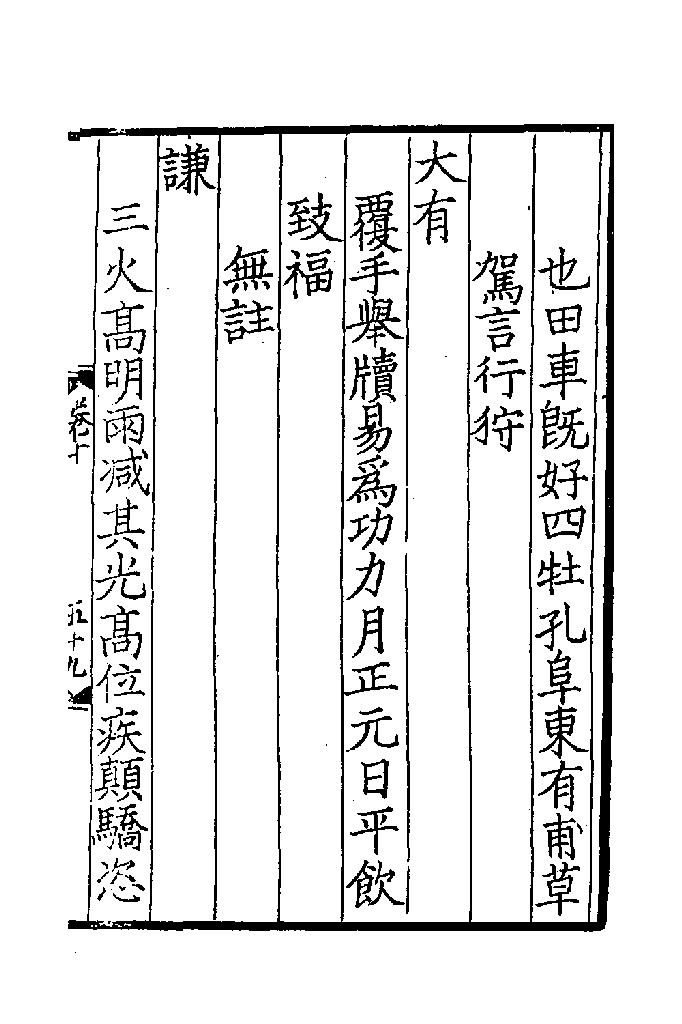 也田車旣好四牡孔阜東有甫草
駕言行狩
大有
覆手舉牘易為功力月正元日平飲
致福
無註
謙
三火髙明雨减其光髙位疾顛驕恣
卷十
五十九